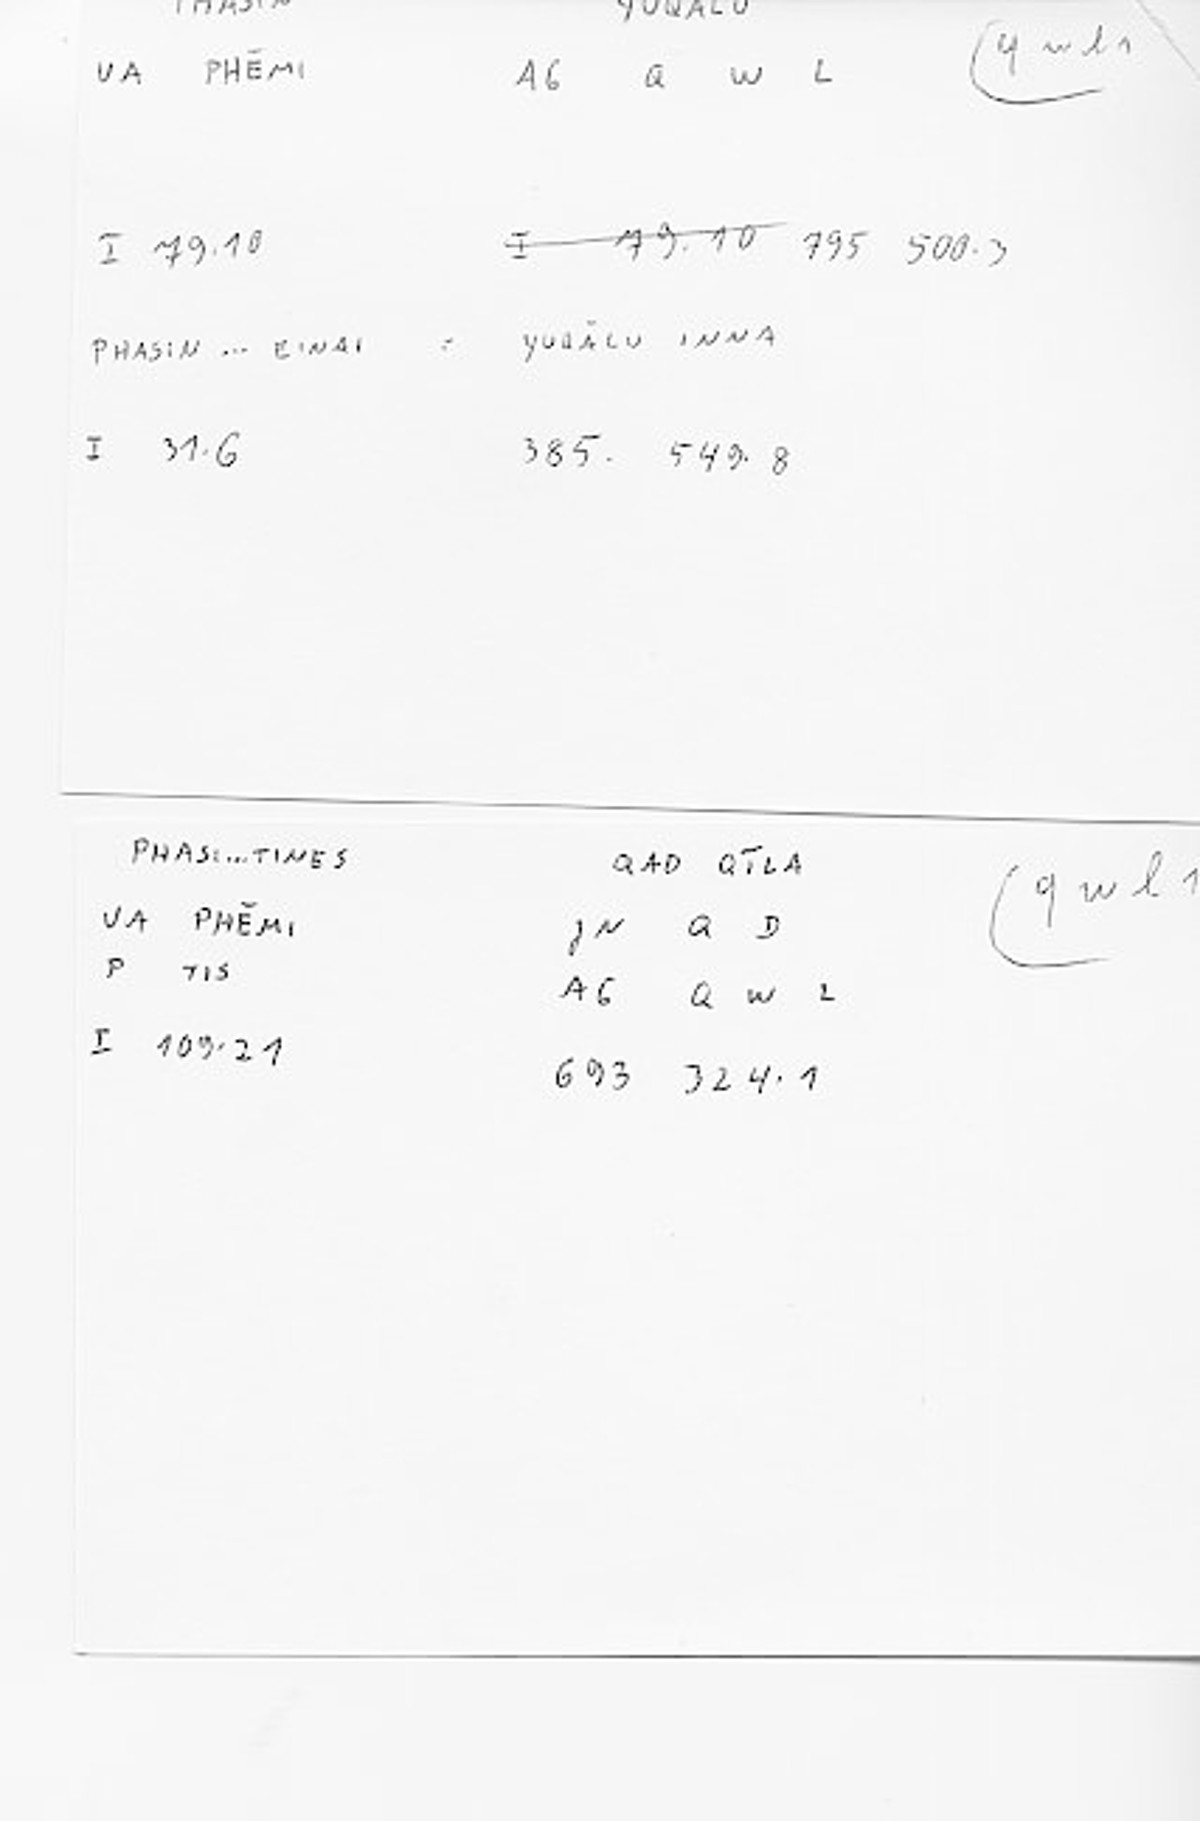 PHASIN YUQALU
VA PHĒMI AG Q W L (qwl1
I 79.10 I 79.10 795 500.3
PHASIN ... EINAI = YUQĀLU INNA
I 31.6 385. 549.8
PHASI...TINES QAD QĪLA (qwl1
VA PHĒMI JN Q D
P TIS AG Q W L
I 109.21 693 324.1